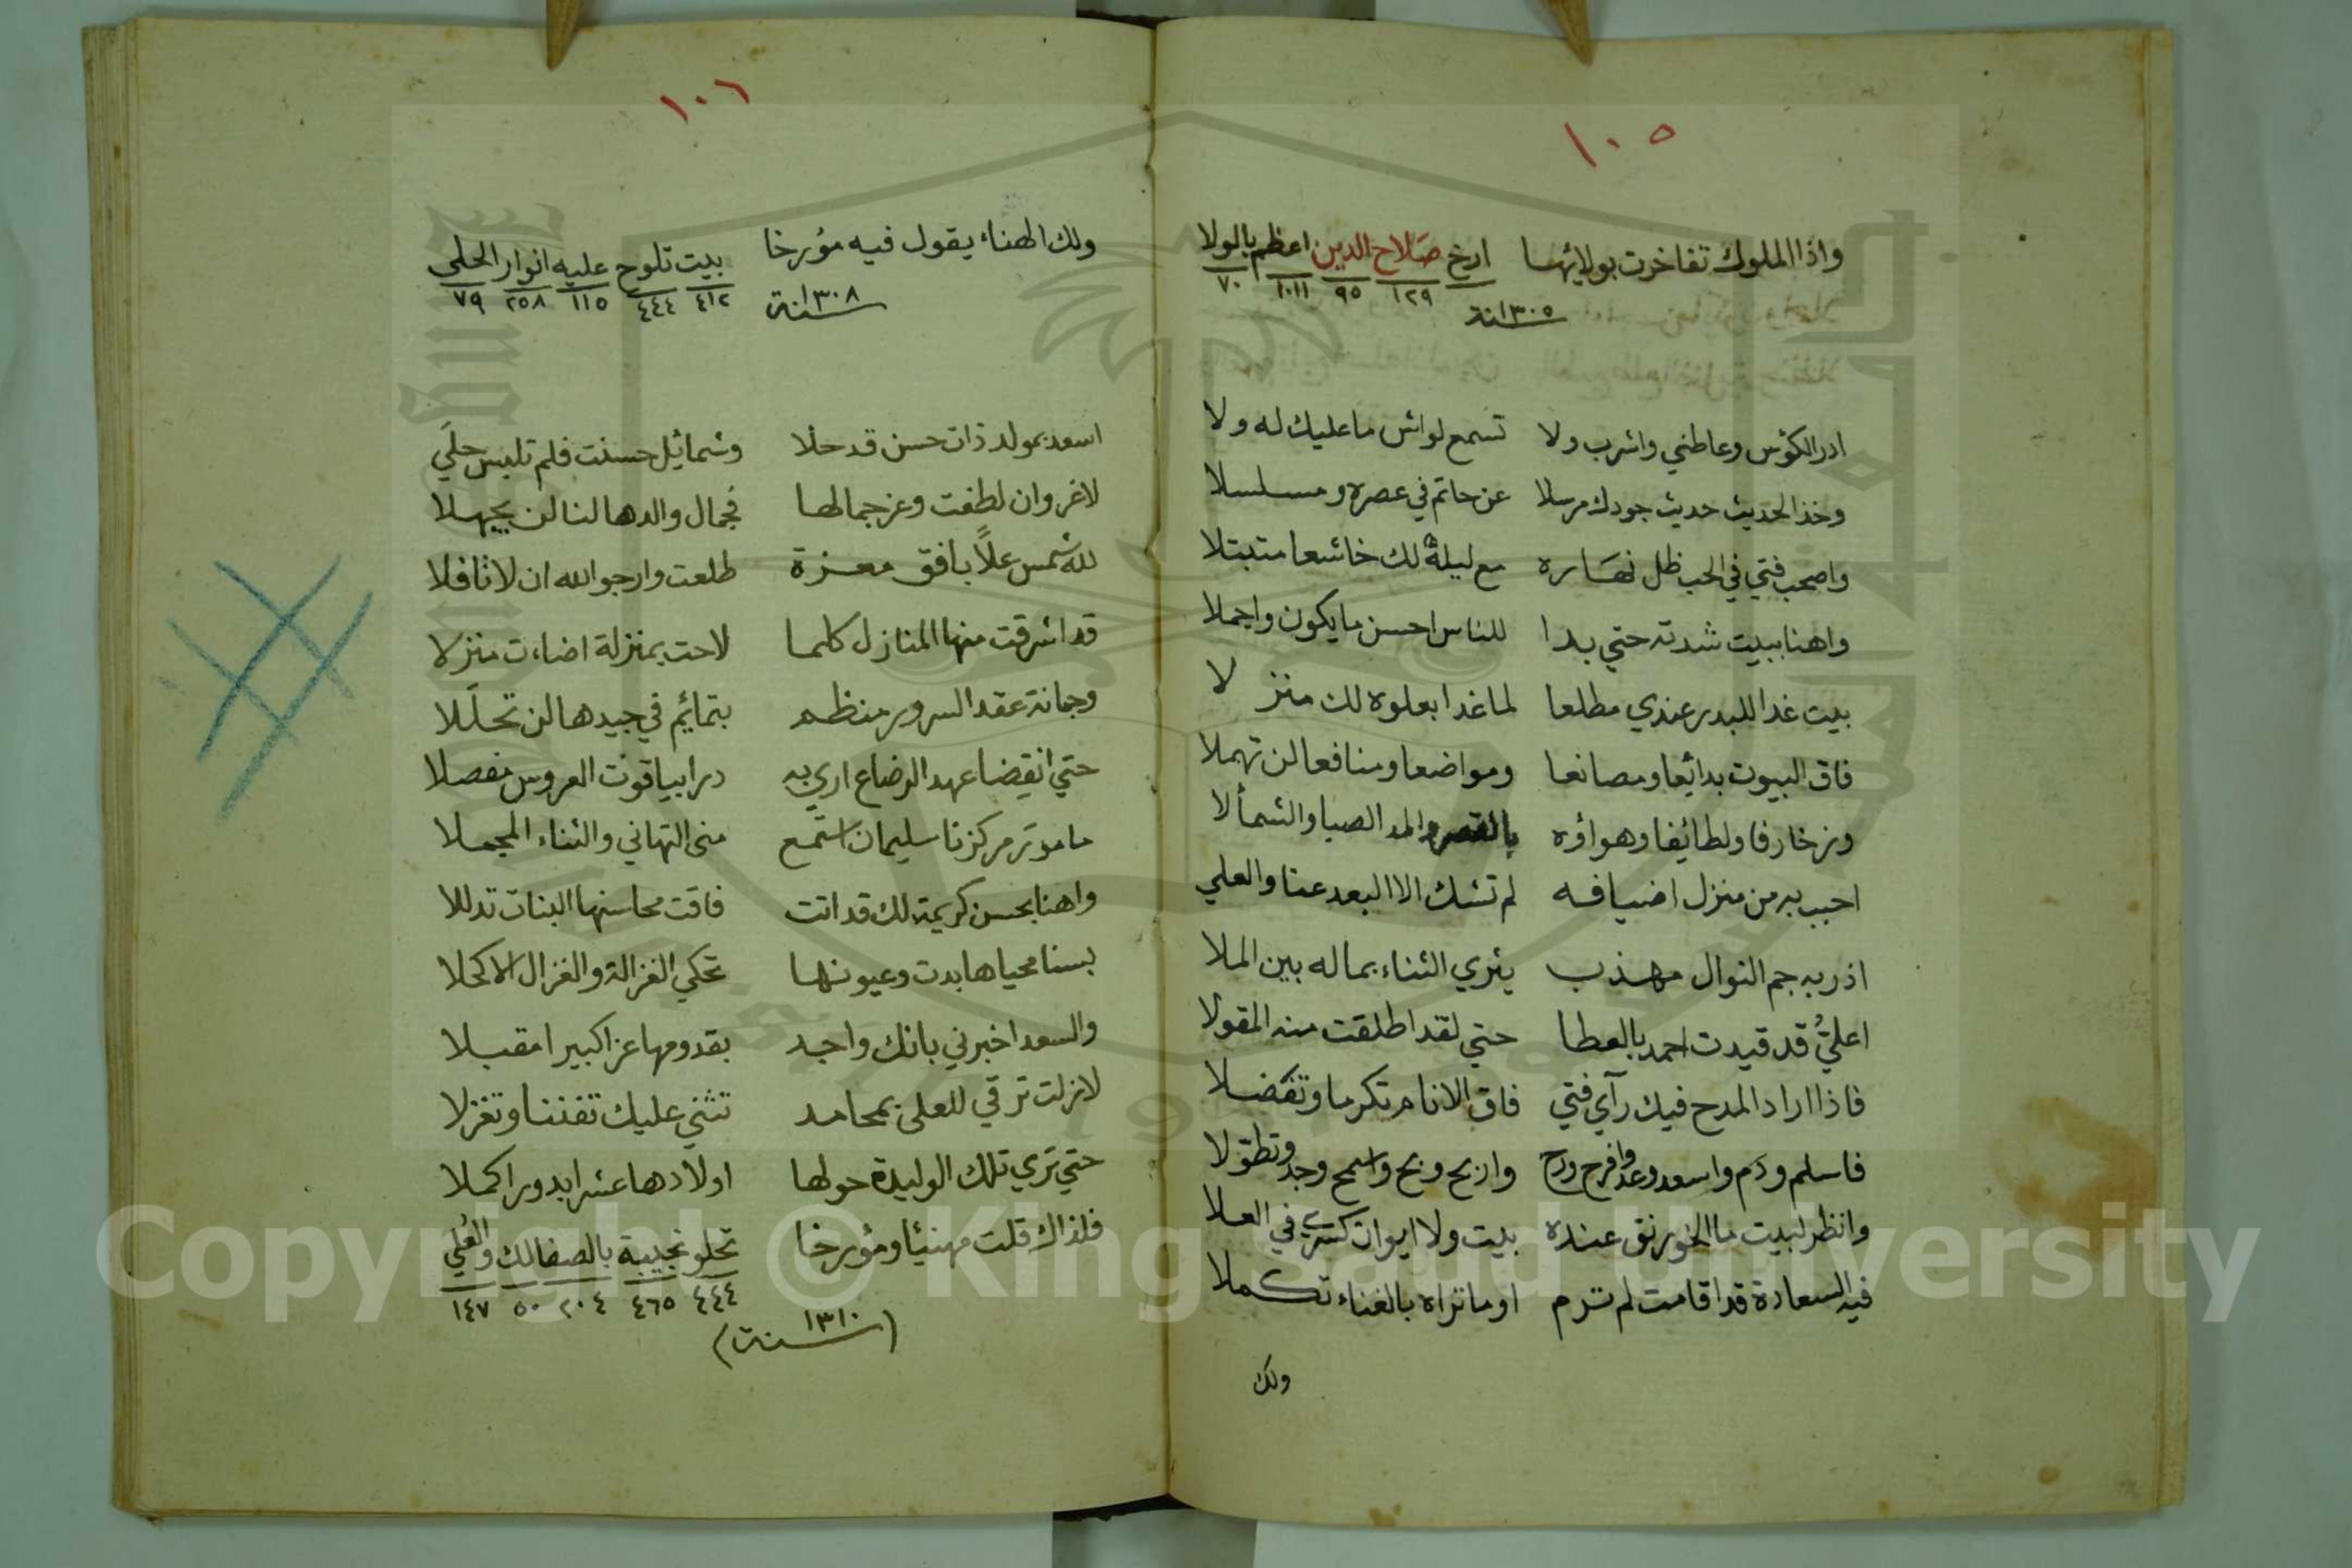 ١٠٥
واذا الملوك تفاخرت بولائها ارخ صلاح الدين اعظم بالولا
١٢٩ ٩٥ ١٠١١ ٧٠
سنة ١٣٠٥
ادر الكؤس وعاطني واشرب ولا تسمع لواش ما عليك له ولا
وخذ الحديث حديث جودك مرسلا عن حاتم في عصره ومسلسلا
واصحب فتي في الحب ظل نهاره مع ليلة لك خاشعا متبتلا
واهنا ببيت شدته حتي بدا للناس احسن ما يكون واجملا
بيت غدا للبدر عندي مطلعا لما غدا بعلوه لك منزلا
فاق البيوت بدائعا ومصانعا ومواضعا ومنافعا لن تهملا
وزخارفا ولطائفا وهواؤه بالقصر والمد الصبا والشمألا
احبب به من منزل اضيافه لم تشك الا البعد عنا والعلي
اذ ربه جم النوال مهذب يثري الثناء بماله بين الملا
اعليُّ قد قيدت احمد بالعطا حتي لقد اطلقت منه المقولا
فاذا اراد المدح فيك رآي فتي فاق الانام تكرما وتفضلا
فاسلم ودم واسعد وعد وافرح ورح واربح وبح واسمح وجد وتطولا
وانظر لبيت ما الخورنق عنده بيت ولا ايوان كسري في العلا
فيه السعادة قد اقامت لم ترم او ما تراه بالغناء تكملا
ولك
١٠٦
ولك الهناء يقول فيه مؤرخا بيت تلوح عليه انوار الحلى
٤١٢ ٤٤٤ ١١٥ ٢٥٨ ٧٩
سنة ١٣٠٨
اسعد بمولد ذات حسن قد حلا وشمائيل حسنت فلم تلبس حلَي
لاغرو ان لطفت وعز جمالها فجمال والدها لنا لن يجهلا
لله شمس علاً بافق معزة طلعت وارجو الله ان لا تافلا
قد اشرقت منها المنازل كلما لاحت بمنزلة اضاءت منزلا
وجمانة عقد السرور منظم بتمائم في جيدها لن تحلَلا
حتي انقضا عهد الرضاع اري به درا بياقوت العروس مفصلا
مامور مركزنا سليمان استمع مني التهاني والثناء المجملا
واهنا بحسن كريمة لك قد اتت فاقت محاسنها البنات تدللا
بسنا محياها بدت وعيونها تحكي الغزالة والغزال الاكحلا
والسعد اخبرني بانك واجد بقدومها عزا كبيرا مقبلا
لازلت ترقي للعلى بمحامد تثني عليك تفننا وتغزلا
حتي تري تلك الوليدة حولها اولادها عشرا بدورا كملا
فلذاك قلت مهنيًا ومؤرخا تحلو نجيبة بالصفا لك والعُلي
٤٤٤ ٤٦٥ ٢٠٤ ٥٠ ١٤٧
(سنة ١٣١٠)
Copyright © King Saud University